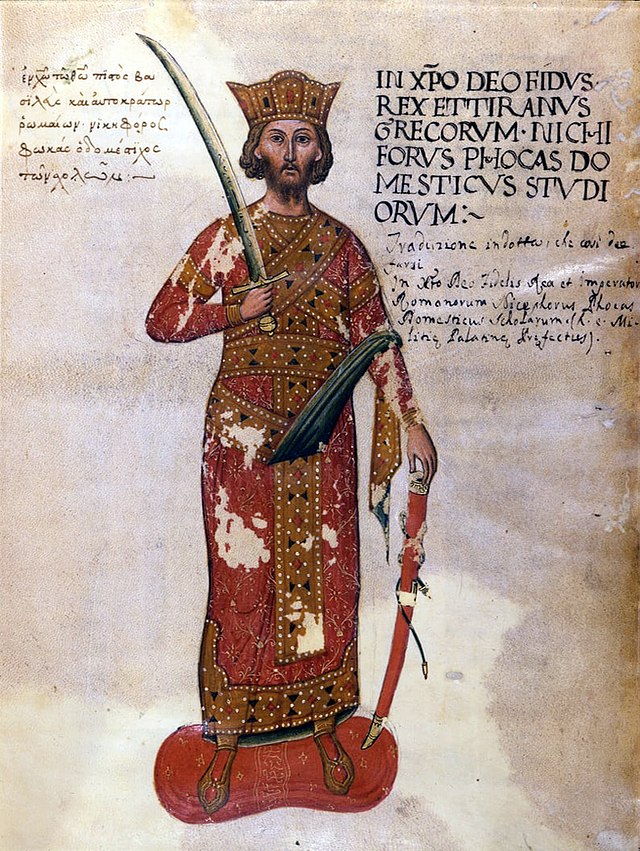 ἐν χῶ τῶ θῶ πιστὸς βα
σιλεὺς καὶ αυτοκράτωρ
ρωμαίων· νικηφορος
φωκᾶς ὁ δομέστιχος
τῶν
IN XP̅O DEO FIDVS·
REX ET TIRANVS
GRECORVM· NICHI
FORVS PHOCAS DO
MESTICVS STVDI
ORVM:~
Traduzione indotta, che così dee
farsi
In Xto Deo Fidelis Rex et Imperator
Romanorum Nicephorus Phocas
Domesticus Scholarum (h. e. Mi-
litię Palatinę Pręfectus).